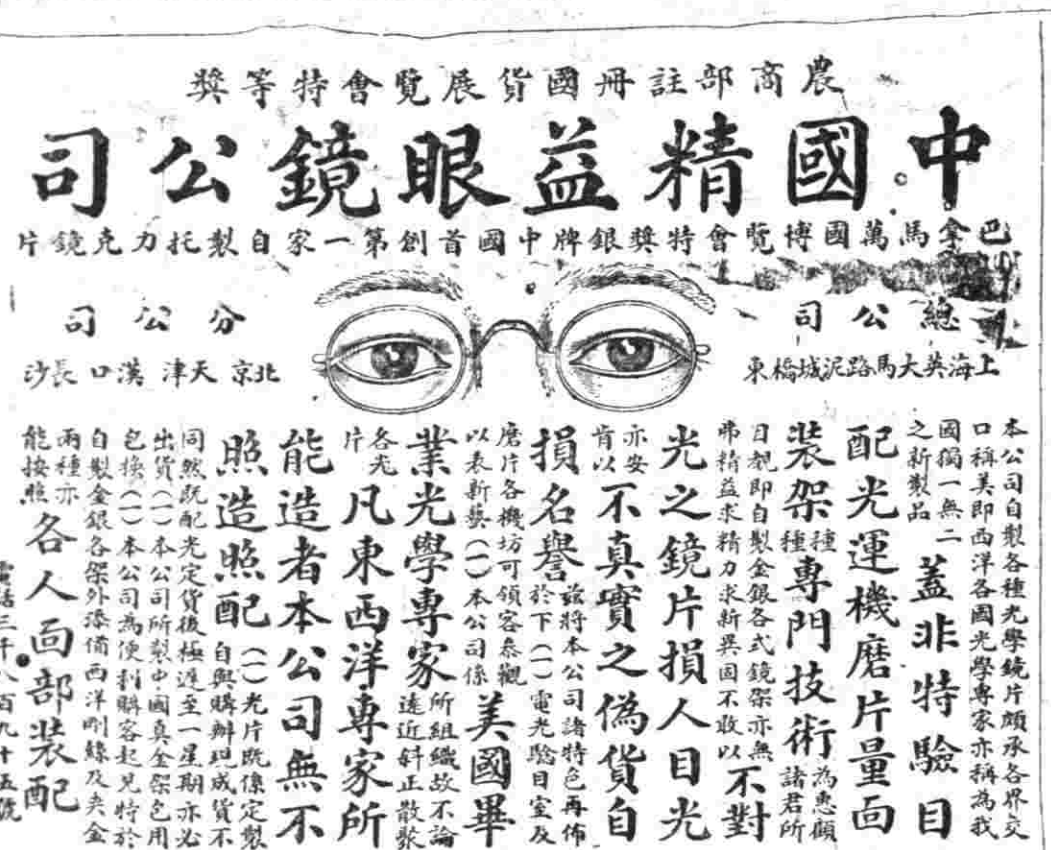 農商部註冊國貨展覽會特等獎
中國精益眼鏡公司
巴拿馬萬國博覽會特獎銀牌中國首創第一家自製托力克鏡片
總公司
上海英大馬路泥城橋東
分公司
北京 天津 漢口 長沙
本公司自製各種光學鏡片頗承各界交
口稱美即西洋各國光學專家亦稱為我
國獨一無二
之新製品
蓋非特驗目
配光運機磨片量面
裝架種種專門技術為惠顧諸君所
目覩即自製金銀各式鏡架亦無
弗精益求精力求新異固不敢以不對
光之鏡片損人目光
亦安肯以不真實之偽貨自
損名譽茲將本公司諸特色再佈於下(一)電光驗目室及
磨片各機坊可領容參觀
以表新藝(一)本公司係美國畢
業光學專家所組織故不論遠近斜正散聚
各光片凡東西洋專家所
能造者本公司無不
照造照配(一)光片既係定製自與購辦現成貨不
同然既配光定貨後極遲至一星期亦必
出貨(一)本公司所製中國真金架包用
包換(一)本公司為便利購客起見特於
自製金銀各架外添備西洋剛絲及夾金
兩種亦
能按照
各人面部裝配
電話三千八百九十五號